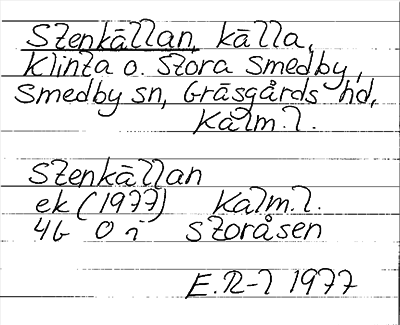 Stenkällan, källa,
Klinta o. Stora Smedby,
Smedby sn, Gräsgårds hd,
Kalm. l.
Stenkällan
ek (1977) Kalm. l.
4G 0 i Storåsen
E. R-l 1977